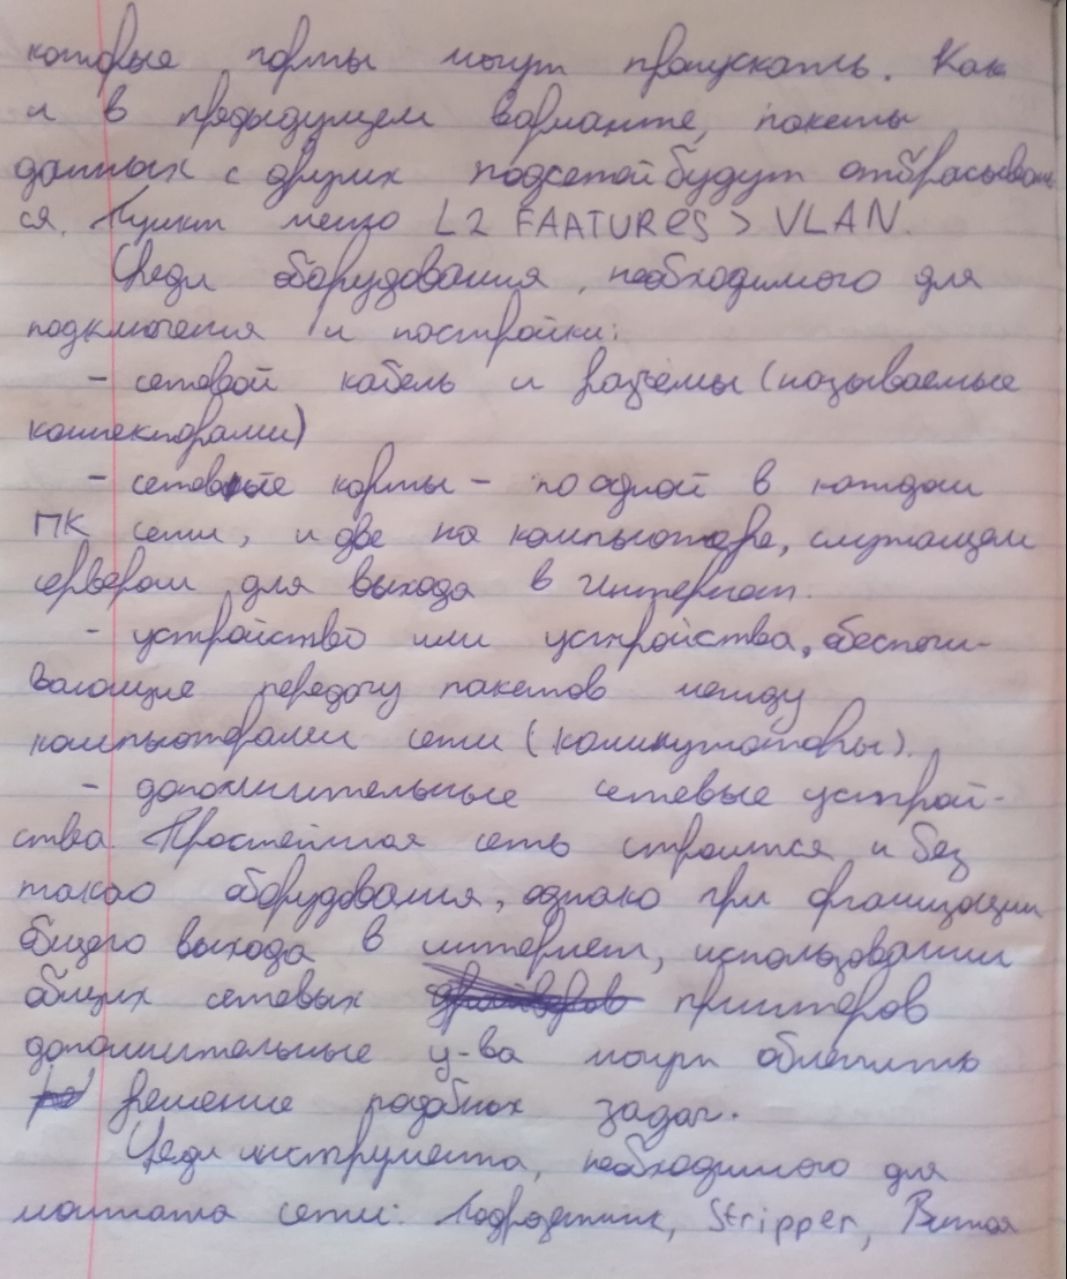 которые порты могут пропускать. Как
и в предыдущем варианте, пакеты
данных с других подсетей будут отбрасывать
ся. Пункт меню L2 FAATUReS > VLAN.
Среди оборудования, необходимого для
подключения и постройки:
- сетевой кабель и разъемы (называемые
коннекторами)
- сетевые карты - по одной в каждом
ПК сети, и две на компьютере, служащем
сервером для выхода в Интернет.
- устройство или устройства, обеспечи-
вающие передачу пакетов между
компьютерами сети (коммутаторы).
- дополнительные сетевые устрой-
ства. Простейшая сеть строится и без
такого оборудования, однако при организации
общего выхода в интернет, использовании
общих сетевых принтеров
дополнительные у-ва могут облегчить
решение подобных задач.
Среди инструмента, необходимого для
монтажа сети: Stripper, Витая